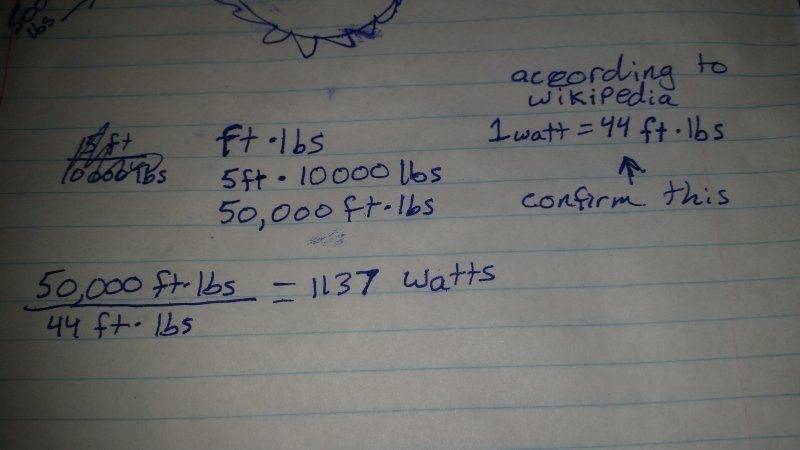 500
lbs
according to
wikipedia
1 watt = 44 ft·lbs
confirm this
15 ft
ft·lbs
5ft · 10000 lbs
50,000 ft·lbs
50,000 ft·lbs
44 ft· lbs
= 1137 watts